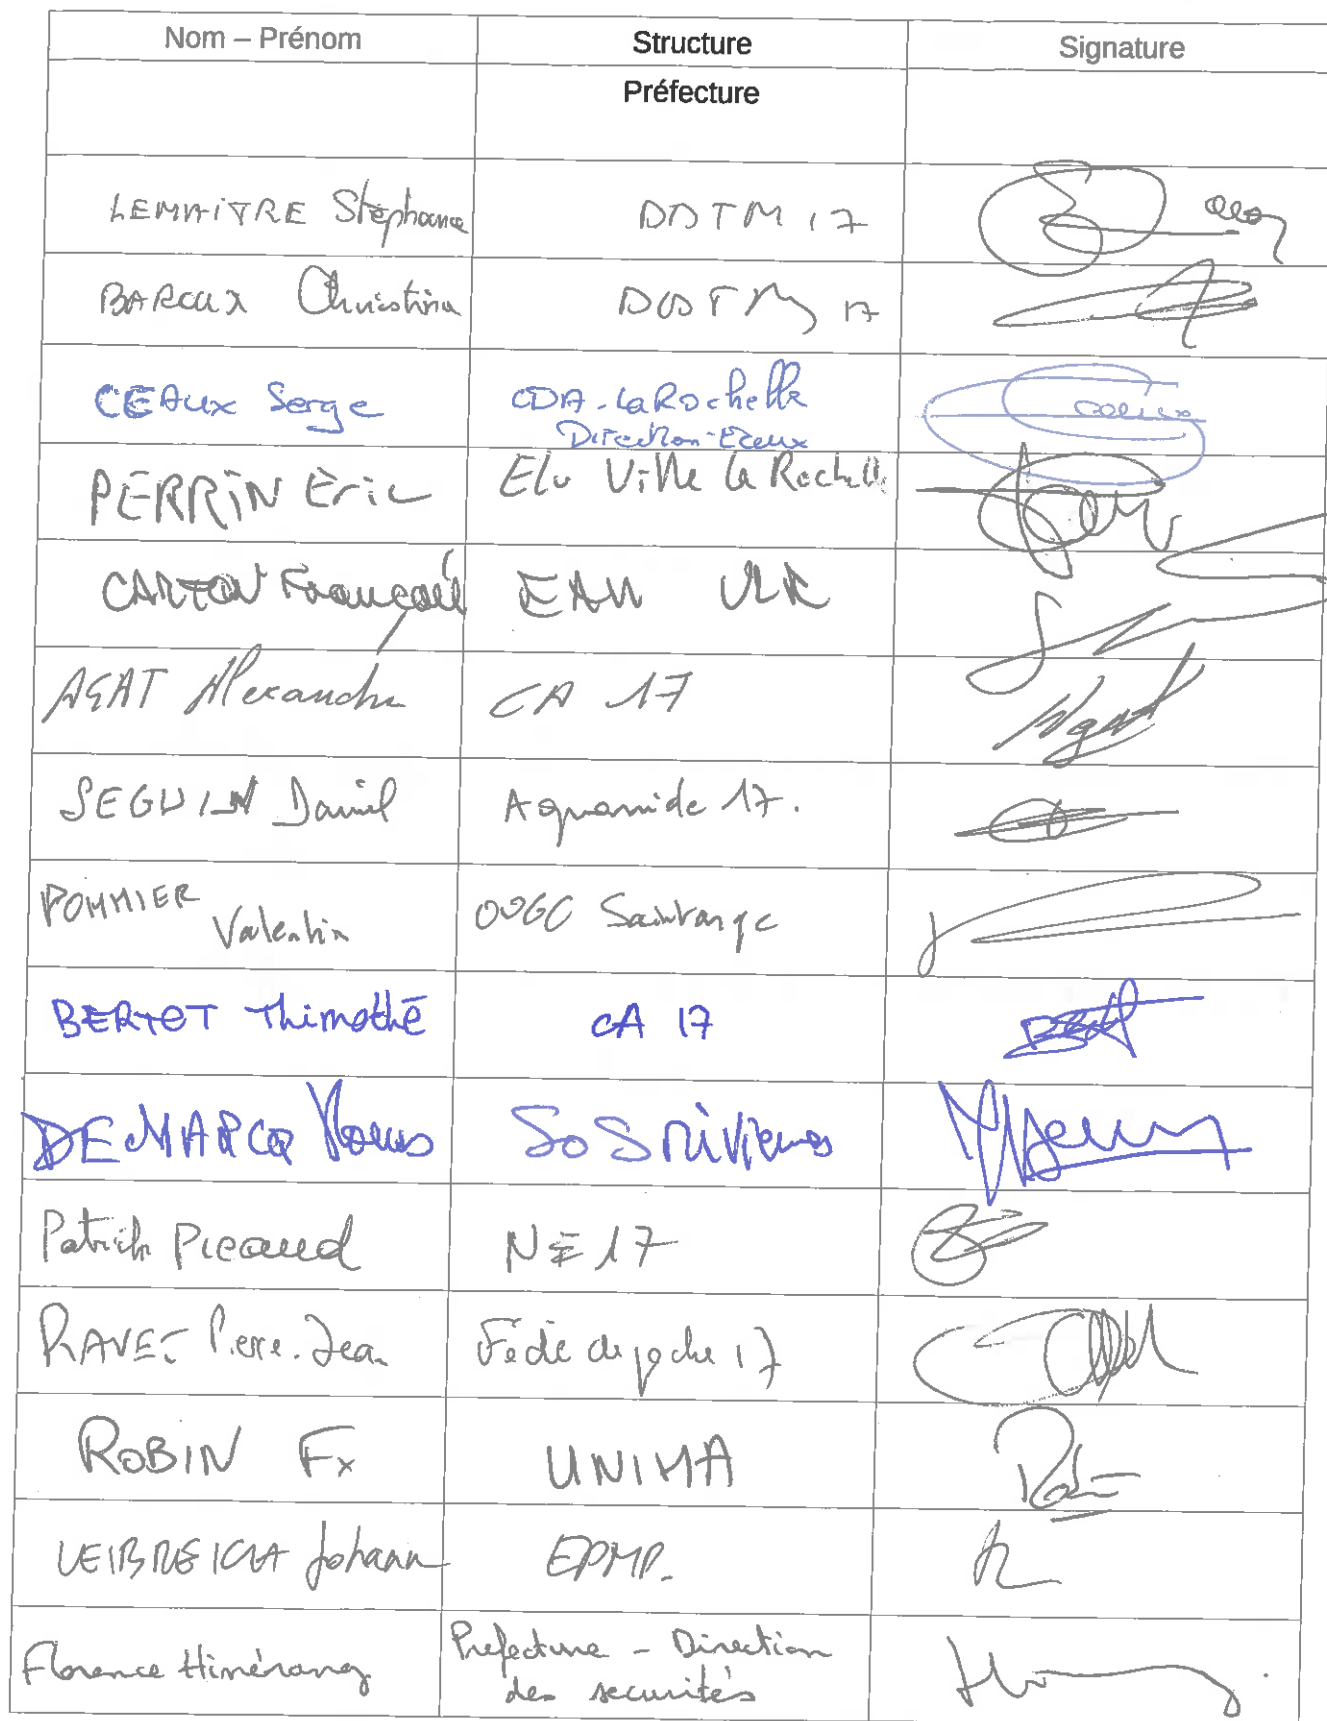 Nom – Prénom Structure Signature
Préfecture
LEMAITRE Stéphane DDTM 17
BAROUX Christina DDTM 17
CEAUX Serge CDA - La Rochelle
Direction Eaux
PERRIN Eric Elu Ville la Rochelle
CARTON François EAU
AGAT Alexandre CA 17
SEGUIN Daniel Aquanide 17.
POMMIER Valentin OUGC Saintonge
BERTOT Thimothé CA 17
DEMARCQ SOS Rivières
Patrick Picaud NE 17
RAVET Pierre-Jean Fédé de pêche 17
ROBIN Fx UNIMA
LEIBREICH Johann EPMP.
Florence Préfecture - Direction
des securités